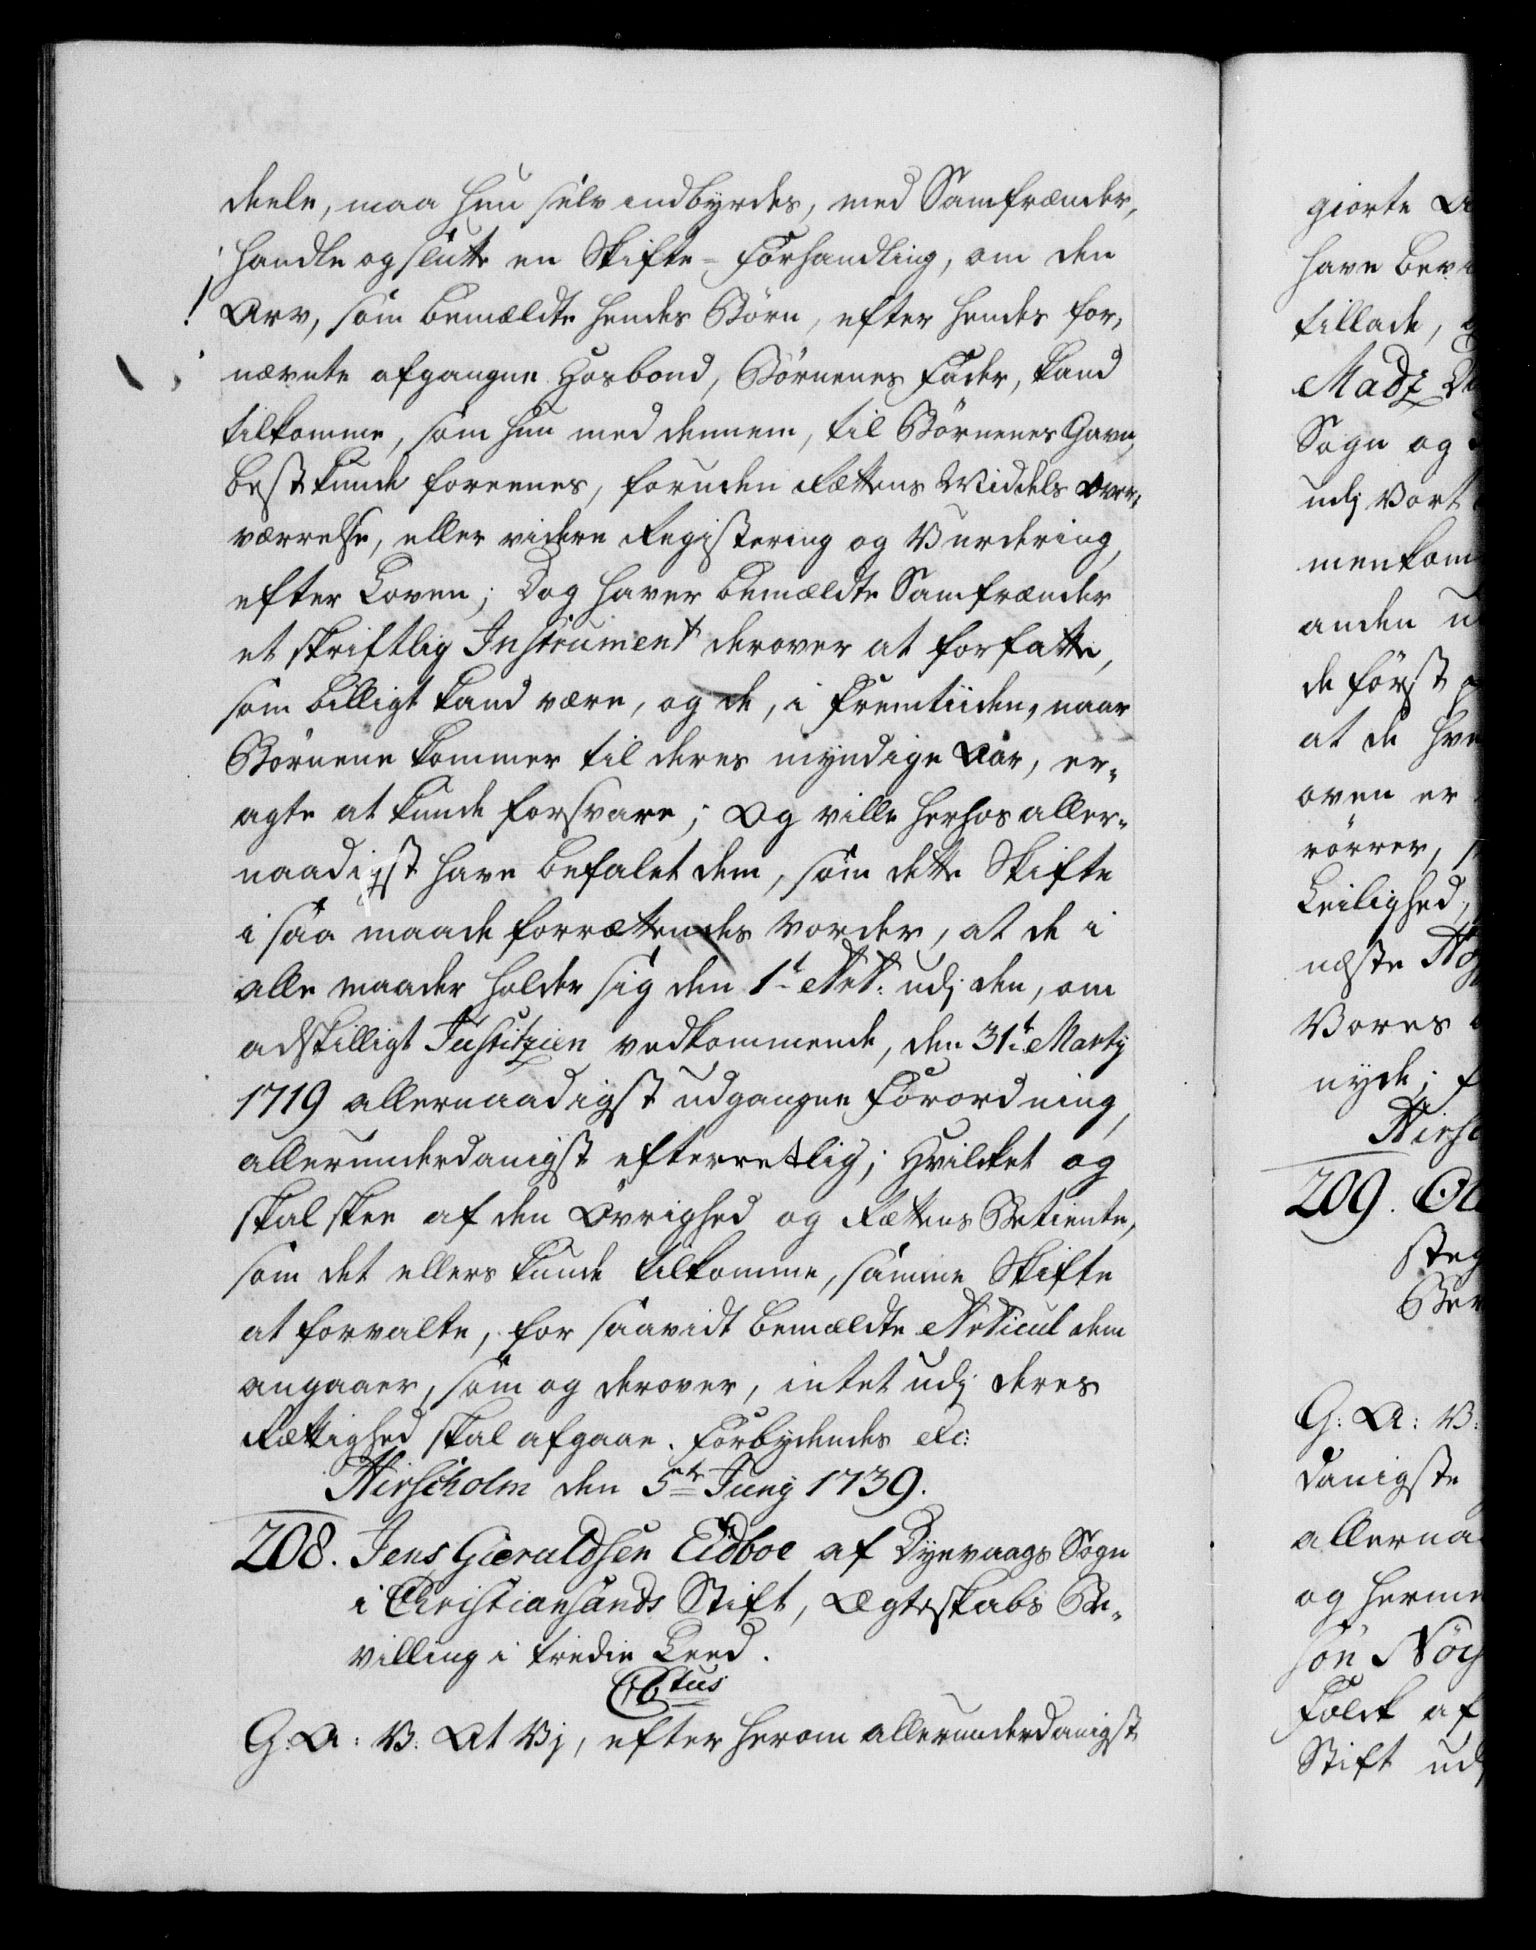 deele, maa hun selv indbyrdes, med Samfrænder,
handle og slutte en Skifte-Forhandling, om den
Arv, som bemældte hendes Børn, efter hendes for,
nævnte afgangne Hosbond, Børnenes Fader, kand
tilkomme, som hun med dennem, til Børnenes Gavn,
best kunde foreenes, foruden Rettens Middels Over,
værrelse, eller videre Registering og Vurdering,
efter Loven; Dog haver bemældte Samfrænder
et skriftlig Instrument derover at forfatte,
som billigt kand være, og de, i Fremtiiden, naar
Børnene kommer til deres myndige Aar, er,
agte at kunde forsvare; Og ville herhos aller,
naadigst have befalet dem, som dette Skifte
i saa maade forrettendes vorder, at de i
alle maader holder sig den 1t Art. udj den, om
adskilligt Justitzien vedkommende, den 31t Martij
1719 allernaadigst udgangne Forordning,
allerunderdanigst efterretlig; Hvilcket og
skal skee af den Øvrighed og Rettens Betiente,
som det ellers kunde tilkomme, samme Skifte
at forvalte, for saavidt bemældte Articul dem
angaaer, som og derover, intet udj deres
Rettighed skal afgaae. Forbydendes etc:
Hirscholm den 5te Junij 1739.
208. Jens Gieruldsen Eidboe af Dyevaags Sogn
i Christiansands Stift, Ægteskabs Be,
villing i tredie Leed.
G: A: V: At Vj, efter herom allerunderdanigst
giorte A
have bev
tillade,
Madz
Sogn og
udj Vort
menkom
anden
de først
at de hve
oven er
rører,
Leilighed,
næste
Vores
nyde; F
Hirsc
209. Ol
steg
Bev
G: A: V:
danigste
allerna
og herme
søn
Folck af
Stift udj